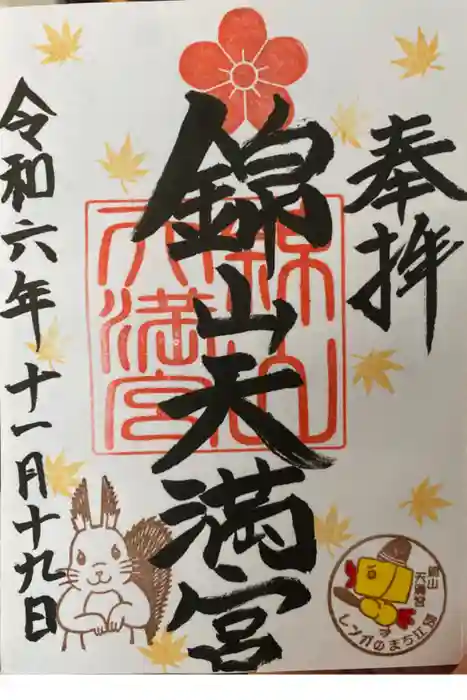 奉拝
錦山天満宮
令和六年十一月十九日
錦山
天満宮
レンガのまち江別